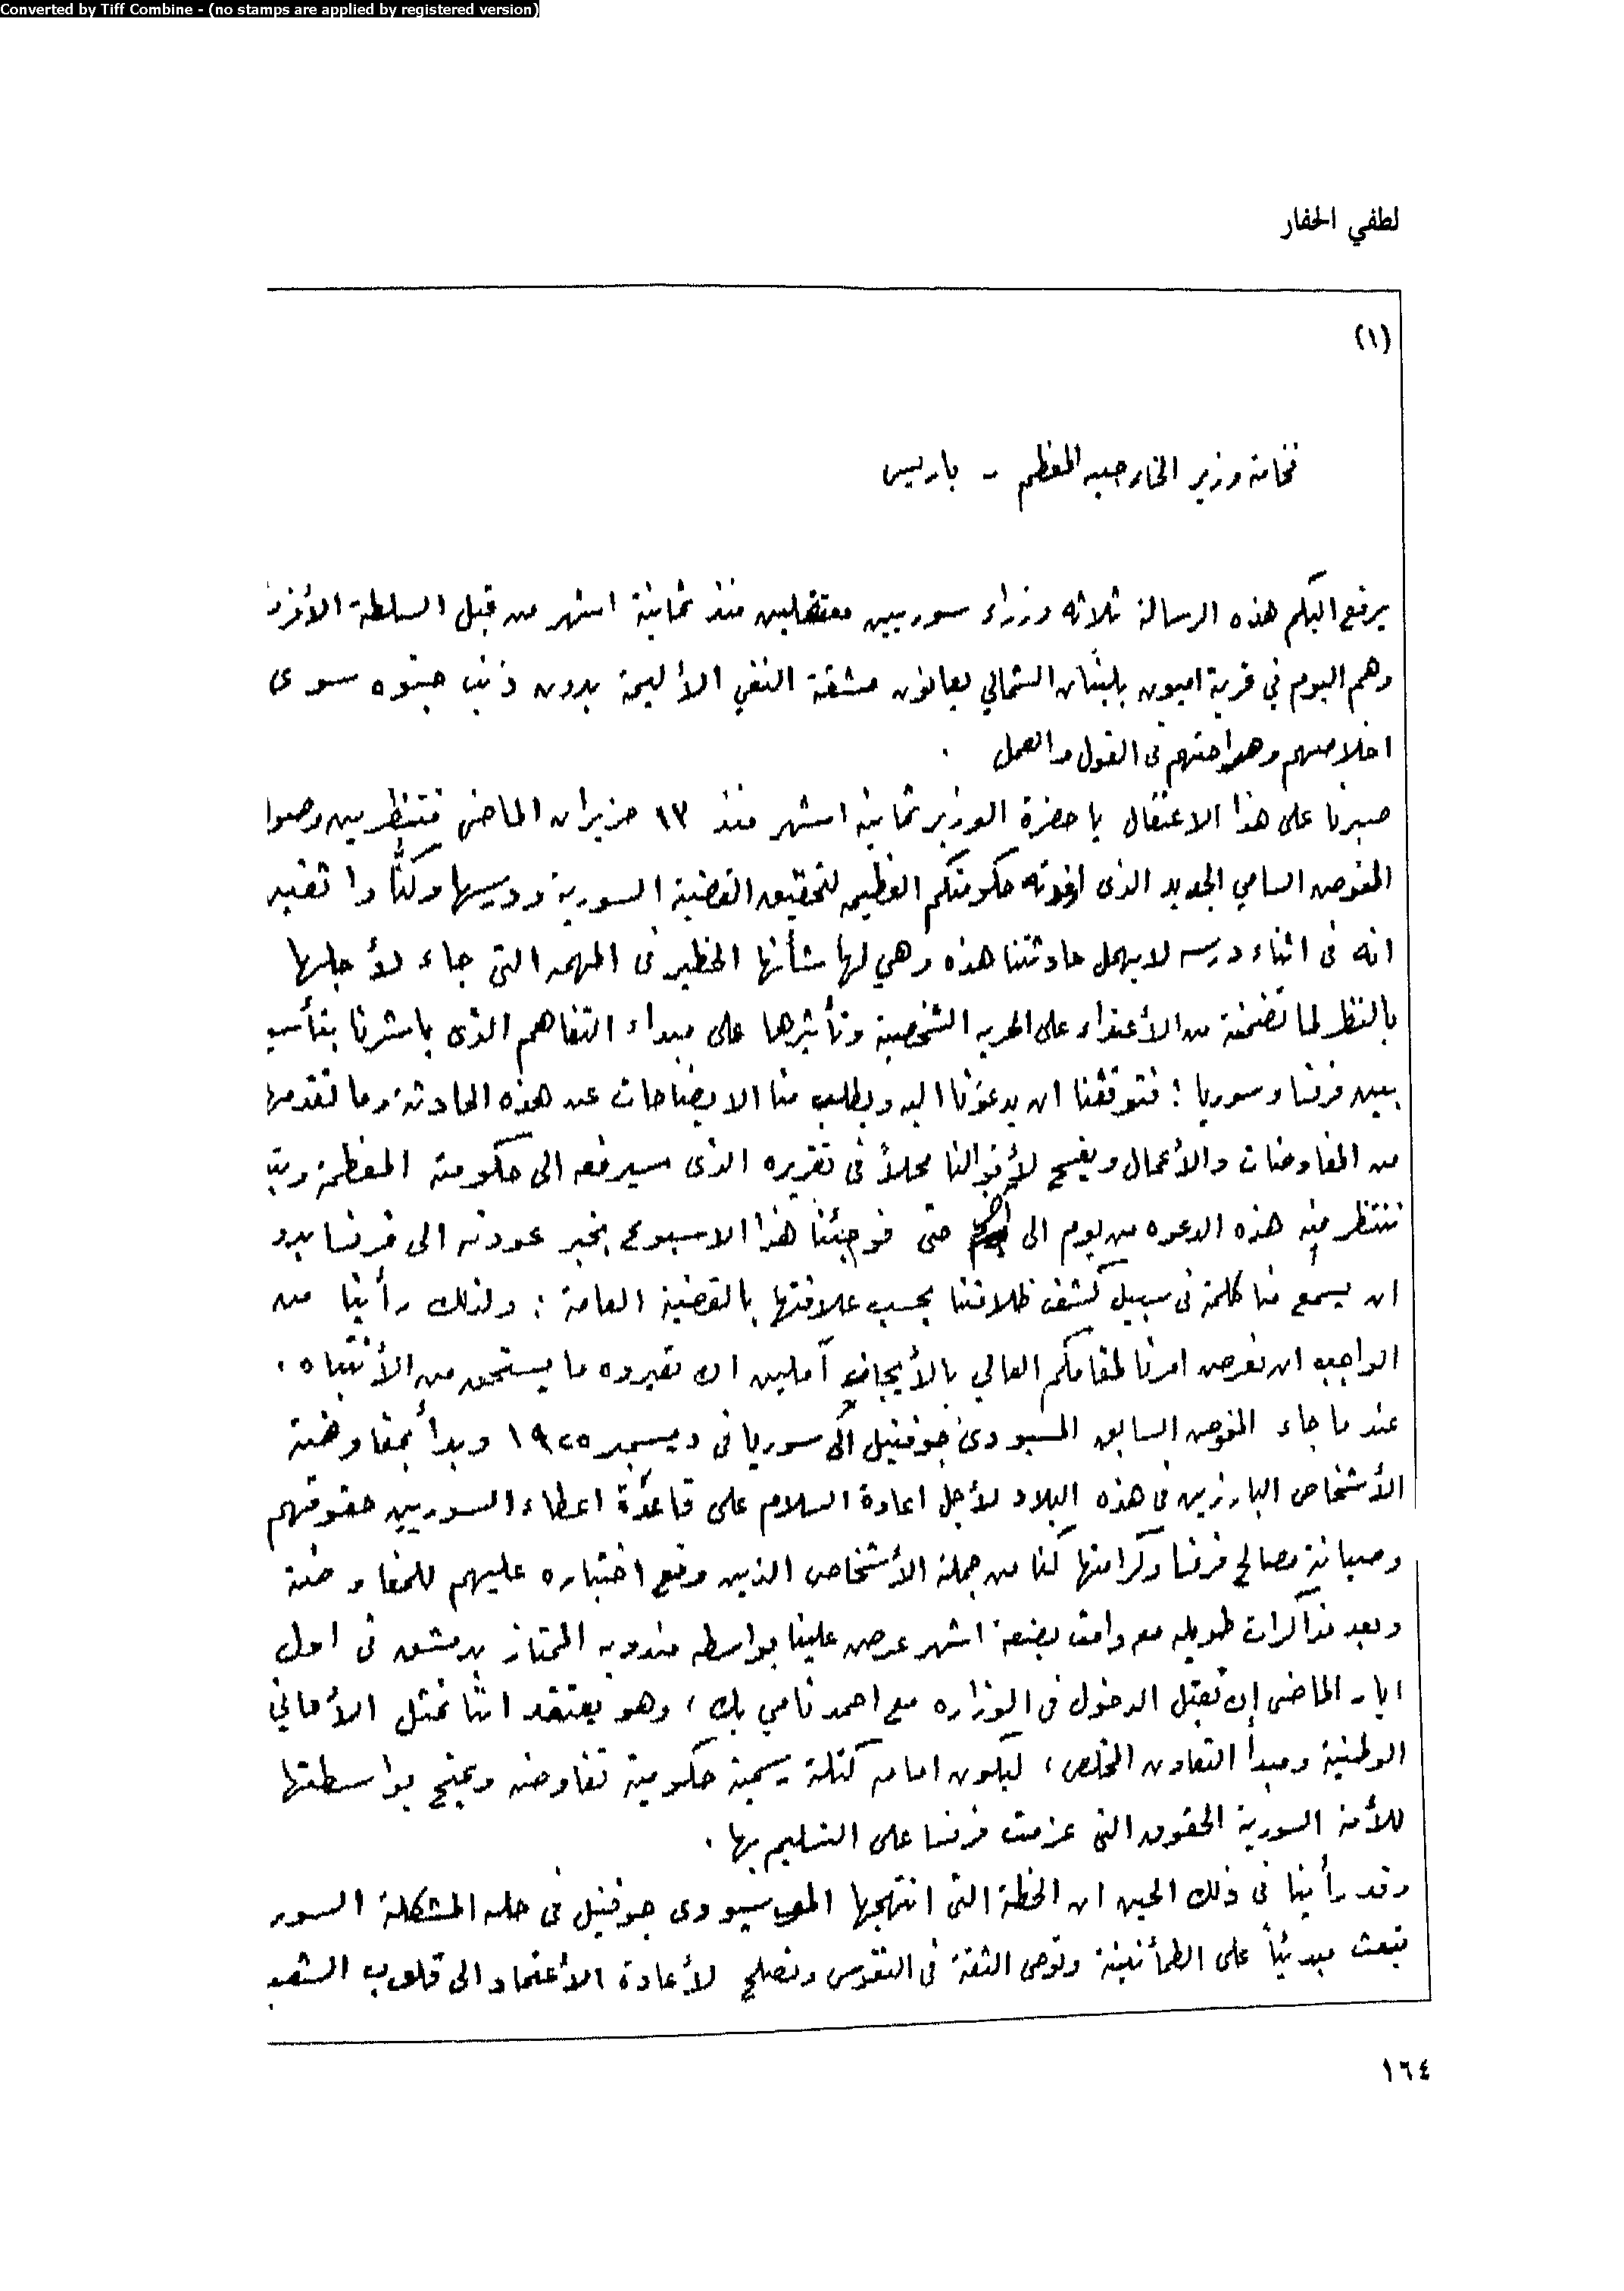 Converted by Tiff Combine - (no stamps are applied by registered version)
لطفي الحفار
(١)
فخامة وزير الخارجيه المعظم - باريس
يرفع اليكم هذه الرسالة ثلاثه وزراء سوريين معتقلين منذ ثمانية اشهر من قبل السلطة
وهم اليوم في قرية اميون بلبنان الشمالي يعانون مشقة النفي الأليمة بدون ذنب جنوه سوى
اخلاصهم وصراحتهم فى القول والعمل .
صبرنا على هذا الاعتقال يا حضرة الوزير ثمانية اشهر منذ ١٣ حزيران الماضى منتظرين
المفوض السامي الجديد الذى اوفدته حكومتكم العظيمه لتحقيق القضية السورية ودرسها وكنّا
انه فى اثناء درسه لا يهمل حادثتنا هذه وهي لها شأنها الخطير فى المهمه التى جاء لأجلها
بالنظر لما تضمنته من الأعتداء على الحريه الشخصية وتأثيرها على مبداء التفاهم الذى باشرنا
بين فرنسا وسوريا ؛ فتوقعنا ان يدعونا اليه ويطلب منا الايضاحات عن هذه الحادثة وما تقدمها
من المفاوضات والأعمال ويفسح لأقوالنا محلاً فى تقريره الذى سيرفعه الى حكومته المعظمة
ننتظر منه هذه الدعوه من يوم الى حتى فوجئنا هذا الاسبوع بخبر عودته الى فرنسا
ان يسمع منا كلمة فى سبيل كشف ظلامتنا بحسب علاقتها بالقضية العامة ؛ ولذلك رأينا من
الواجب ان نعرض امرنا لمقامكم العالي بالأيجاز آملين ان تعيروه ما يستحق من الأنتباه .
عند ما جاء المفوض السابق المسيو دى جوفنيل الى سوريا فى ديسمبر ١٩٢٥ وبدأ بمفاوضة
الأشخاص البارزين فى هذه البلاد لأجل اعادة السلام على قاعدة اعطاء السوريين حقوقهم
وصيانة مصالح فرنسا وكرامتها كنا من جملة الأشخاص الذين وقع اختياره عليهم للمفاوضة
وبعد مذاكرات طويله معه دامت بضعة اشهر عرض علينا بواسطه مندوبه الممتاز بدمشق فى اول
ايار الماضى ان نقبل الدخول فى الوزاره مع احمد نامي بك ، وهو يعتقد انّنا نمثل الأماني
الوطنية ومبدأ التعاون المخلص ، ليكون امامه كتلة رسمية حكومية تفاوضه ويمنح بواسطتها
للأمة السورية الحقوق التى عزمت فرنسا على التسليم بها .
وقد رأينا فى ذلك الحين ان الخطة التى انتهجها المسيو دى جوفنيل فى حله المشكلة
تبعث مبدئياً على الطمأنينة وتوحى الثقة فى النفوس وتصلح لأعادة الأعتماد الى قلوب
١٦٤